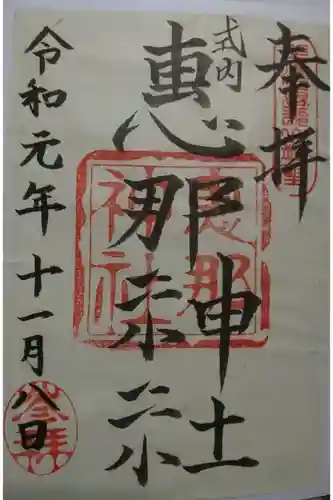 奉拝
式内
恵那神社
恵那神社
令和元年十一月八日
参拝